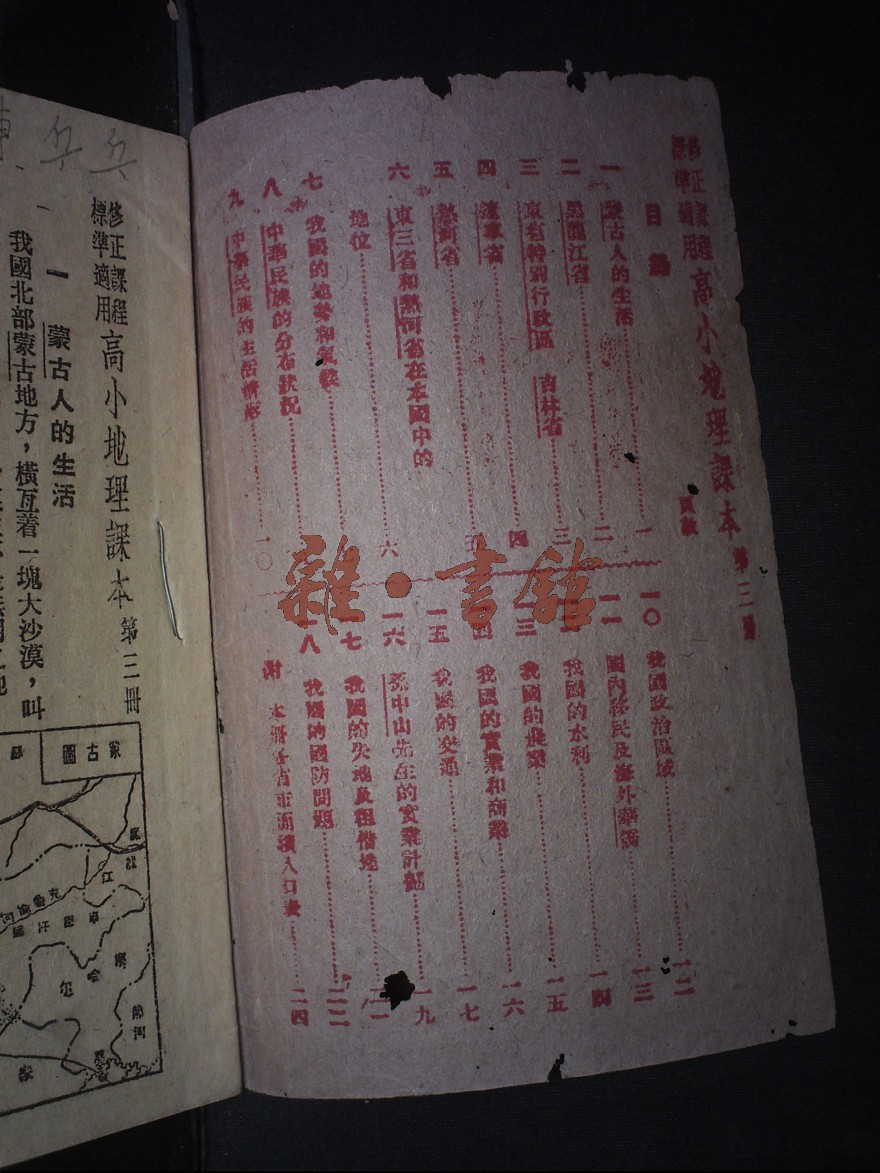 修正課程
標準適用
高小地理課本 第三冊
目錄
頁數
一 蒙古人的生活 一
二 黑龍江省 二
三 東省特別行政區 吉林省 三
四 遼寧省 四
五 熱河省 五
六 東三省和熱河省在本國中的
地位 六
七 我國的地勢和氣候
八 中華民族的分布狀況
九 中華民族的生活情形 一〇
一〇 我國政治區域 一二
一一 國內移民及海外華僑 一三
我國的水利 一四
一三 我國的農業 一五
一四 我國的實業和商業 一六
一五 我國的交通 一七
一六 孫中山先生的實業計劃 一九
一七 我國的失地及租借地 二一
一八 我國的國防問題 二二
附 本冊各省市面積人口表 二四
雜·書館
修正課程
標準適用
高小地理課本 第三冊
一 蒙古人的生活
我國北部蒙古地方，橫亙着一塊大沙漠，叫
蒙古圖
黑
龍
江
克魯倫河
車臣汗部
察
哈
爾
熱河